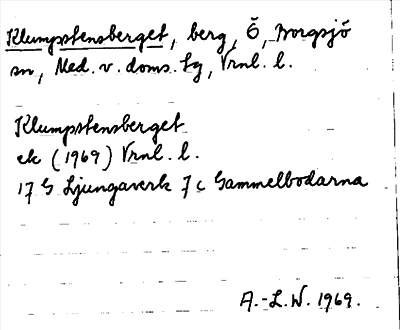 Klumpstensberget, berg, Ö, Borgsjö
sn, Med. v. doms. tg, Vrnl. l.
Klumpstensberget
ek (1969) Vrnl. l.
17 G Ljungaverk 7 c Gammelbodarna
A.-L.W. 1969.